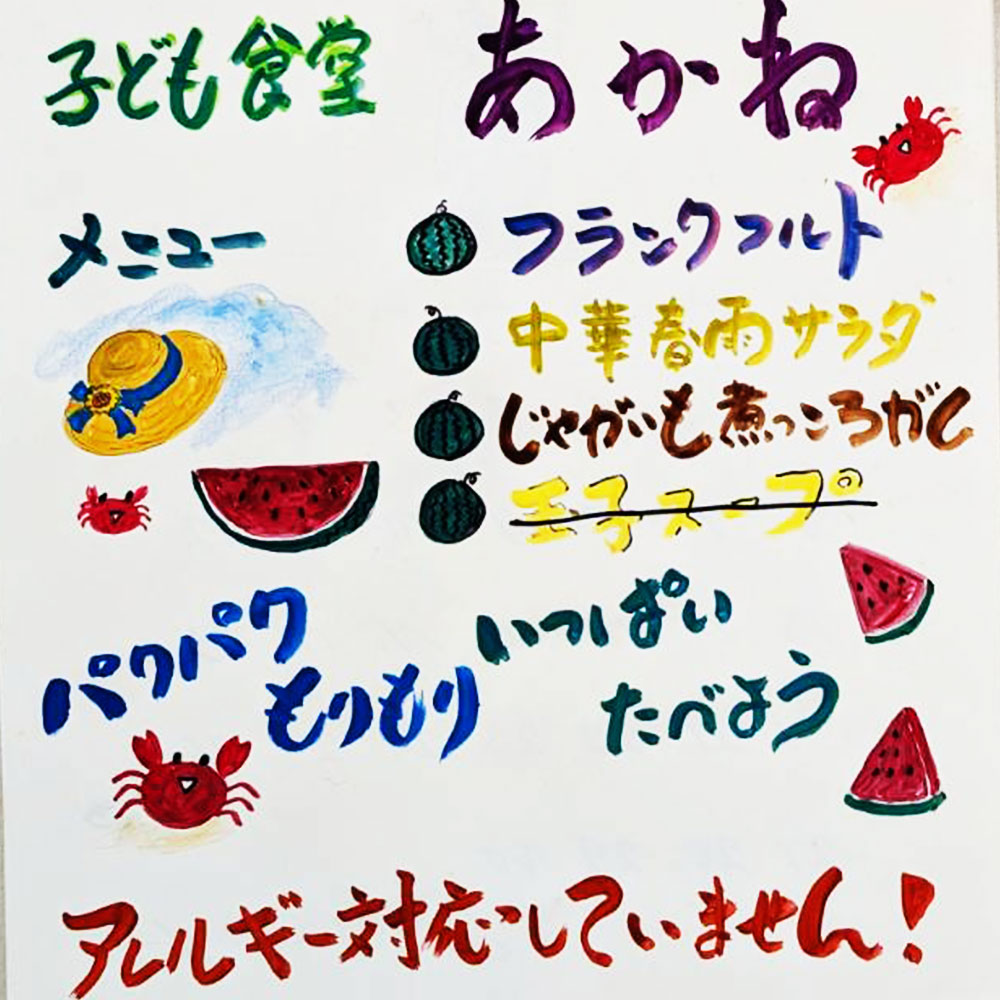 子ども食堂 あかね
メニュー
フランクフルト
中華春雨サラダ
じゃがいも煮っころがし
玉子スープ
パクパク
もりもり
いっぱい
たべよう
アレルギー対応していません!